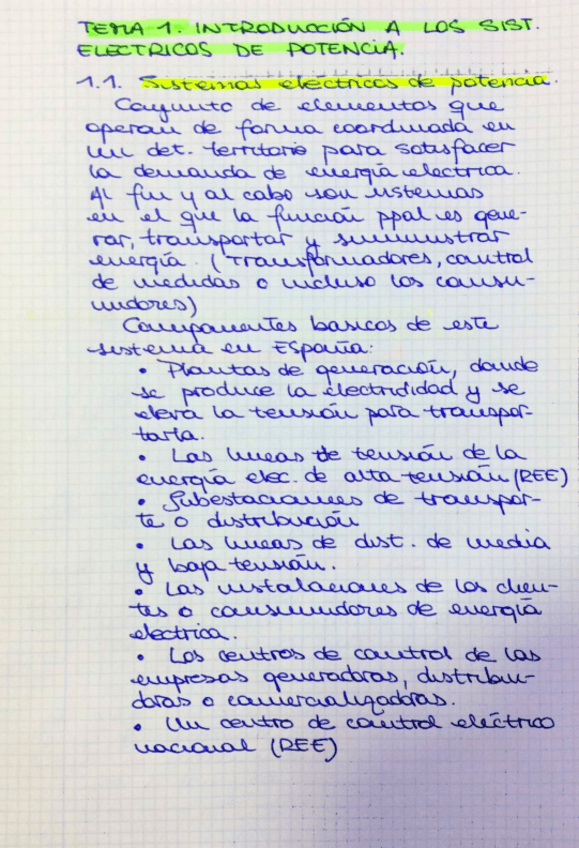 TEMA 1. INTRODUCCIÓN A LOS SIST.
ELECTRICOS DE POTENCIA.
1.1. Sistemas eléctricos de potencia.
Conjunto de elementos que
operan de forma coordinada en
un det. territorio para satisfacer
la demanda de energía electrica.
Al fin y al cabo son sistemas
en el que la función ppal es gene-
rar, transportar y suministrar
energía. (Transformadores, control
de medidas o incluso los consu-
midores)
Componentes basicos de este
sistema en España:
• Plantas de generación, donde
se produce la electricidad y se
eleva la tensión para transpor-
tarla.
• Las lineas de tensión de la
energía elec. de alta tensión (REE)
• Subestaciones de transpor-
te o distribución
• Las lineas de dist. de media
y baja tensión.
• Las instalaciones de los clien-
tes o consumidores de energía
electrica.
• Los centros de control de las
empresas generadoras, distribui-
doras o comercializadoras.
• Un centro de control eléctrico
nacional (REE)